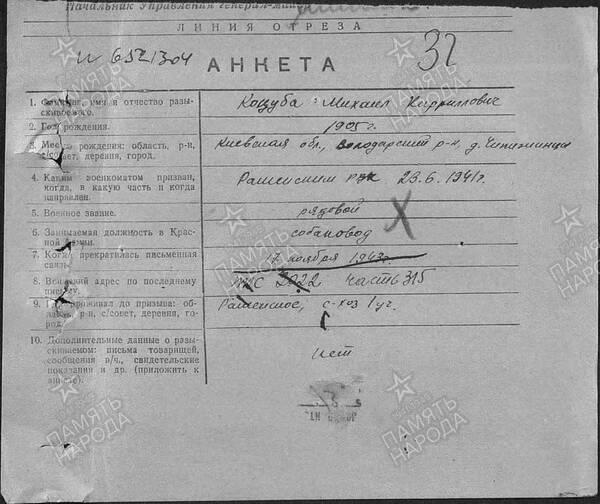 Начальник Управления генерал-май
ЛИНИЯ ОТРЕЗА
и 6521304
32
АНКЕТА
1. Фамилия, имя и отчество разы-
скиваемого.
Коцуба Михаил Кириллович
2. Год рождения.
1905 г.
3. Место рождения: область, р-н,
с/совет, деревня, город.
Киевская обл., Володарский р-н, д.
4. Каким военкоматом призван,
когда, в какую часть и когда
направлен.
23.6.1941г.
5. Военное звание.
рядовой
6. Занимаемая должность в Крас-
ной Армии.
собаковод
7. Когда прекратилась письменная
связь.
17 ноября 1943г.
8. Воинский адрес по последнему
письму.
ППС 2022 часть 315
9. Где проживал до призыва: об-
ласть, р-н, с/совет, деревня, го-
род.
с-хоз 1 уч.
10. Дополнительные данные о разы-
скиваемом: письма товарищей,
сообщения в/ч., свидетельские
показания и др. (приложить к
анкете).
нет
ПАМЯТЬ
НАРОДА